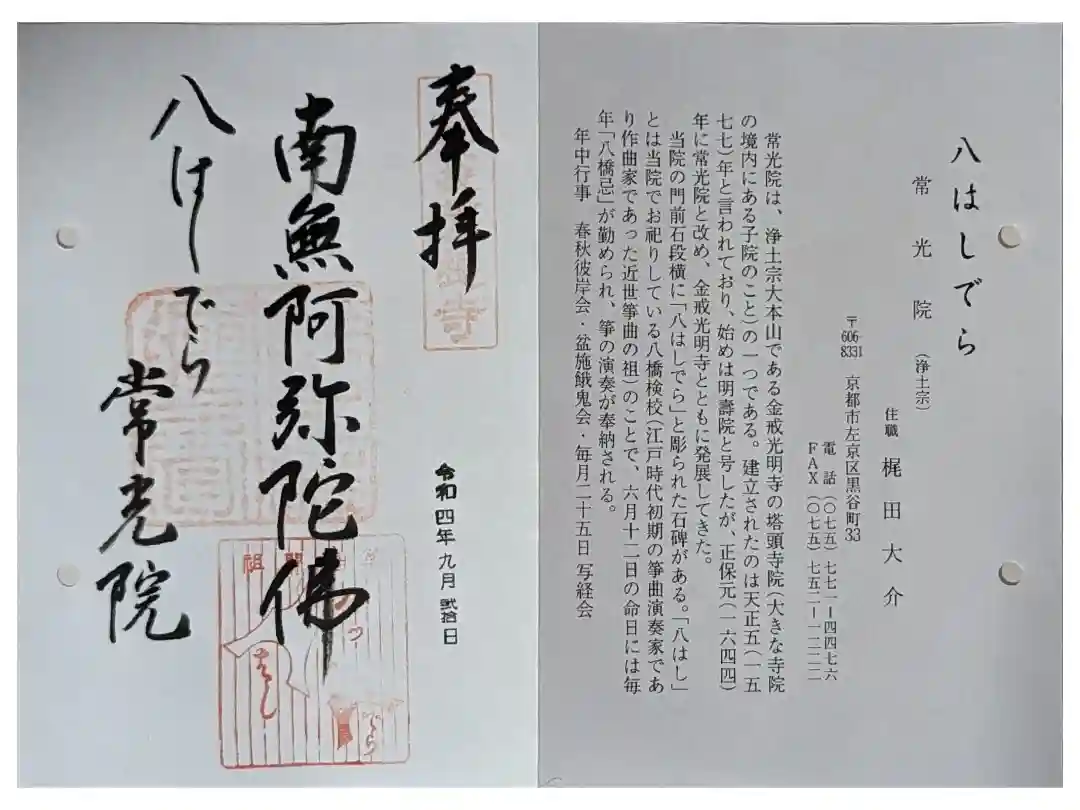 八はしでら
常光院(浄土宗)
住職 梶田大介
〒606-8331 京都市左京区黒谷町33
電話(〇七五)七七一ー四四七六
FAX(〇七五)七五二ー一二二二
常光院は、浄土宗大本山である金戒光明寺の塔頭寺院(大きな寺院
の境内にある子院のこと)の一つである。建立されたのは天正五(一五
七七)年と言われており、始めは明壽院と号したが、正保元(一六四四)
年に常光院と改め、金戒光明寺とともに発展してきた。
当院の門前石段横に「八はしでら」と彫られた石碑がある。「八はし」
とは当院でお祀りしている八橋検校(江戸時代初期の箏曲演奏家であ
り作曲家であった近世箏曲の祖)のことで、六月十二日の命日には毎
年「八橋忌」が勤められ、箏の演奏が奉納される。
年中行事 春秋彼岸会・盆施餓鬼会・毎月二十五日 写経会
奉拝
令和四年九月弐拾日
南無阿弥陀佛
八はしでら
常光院